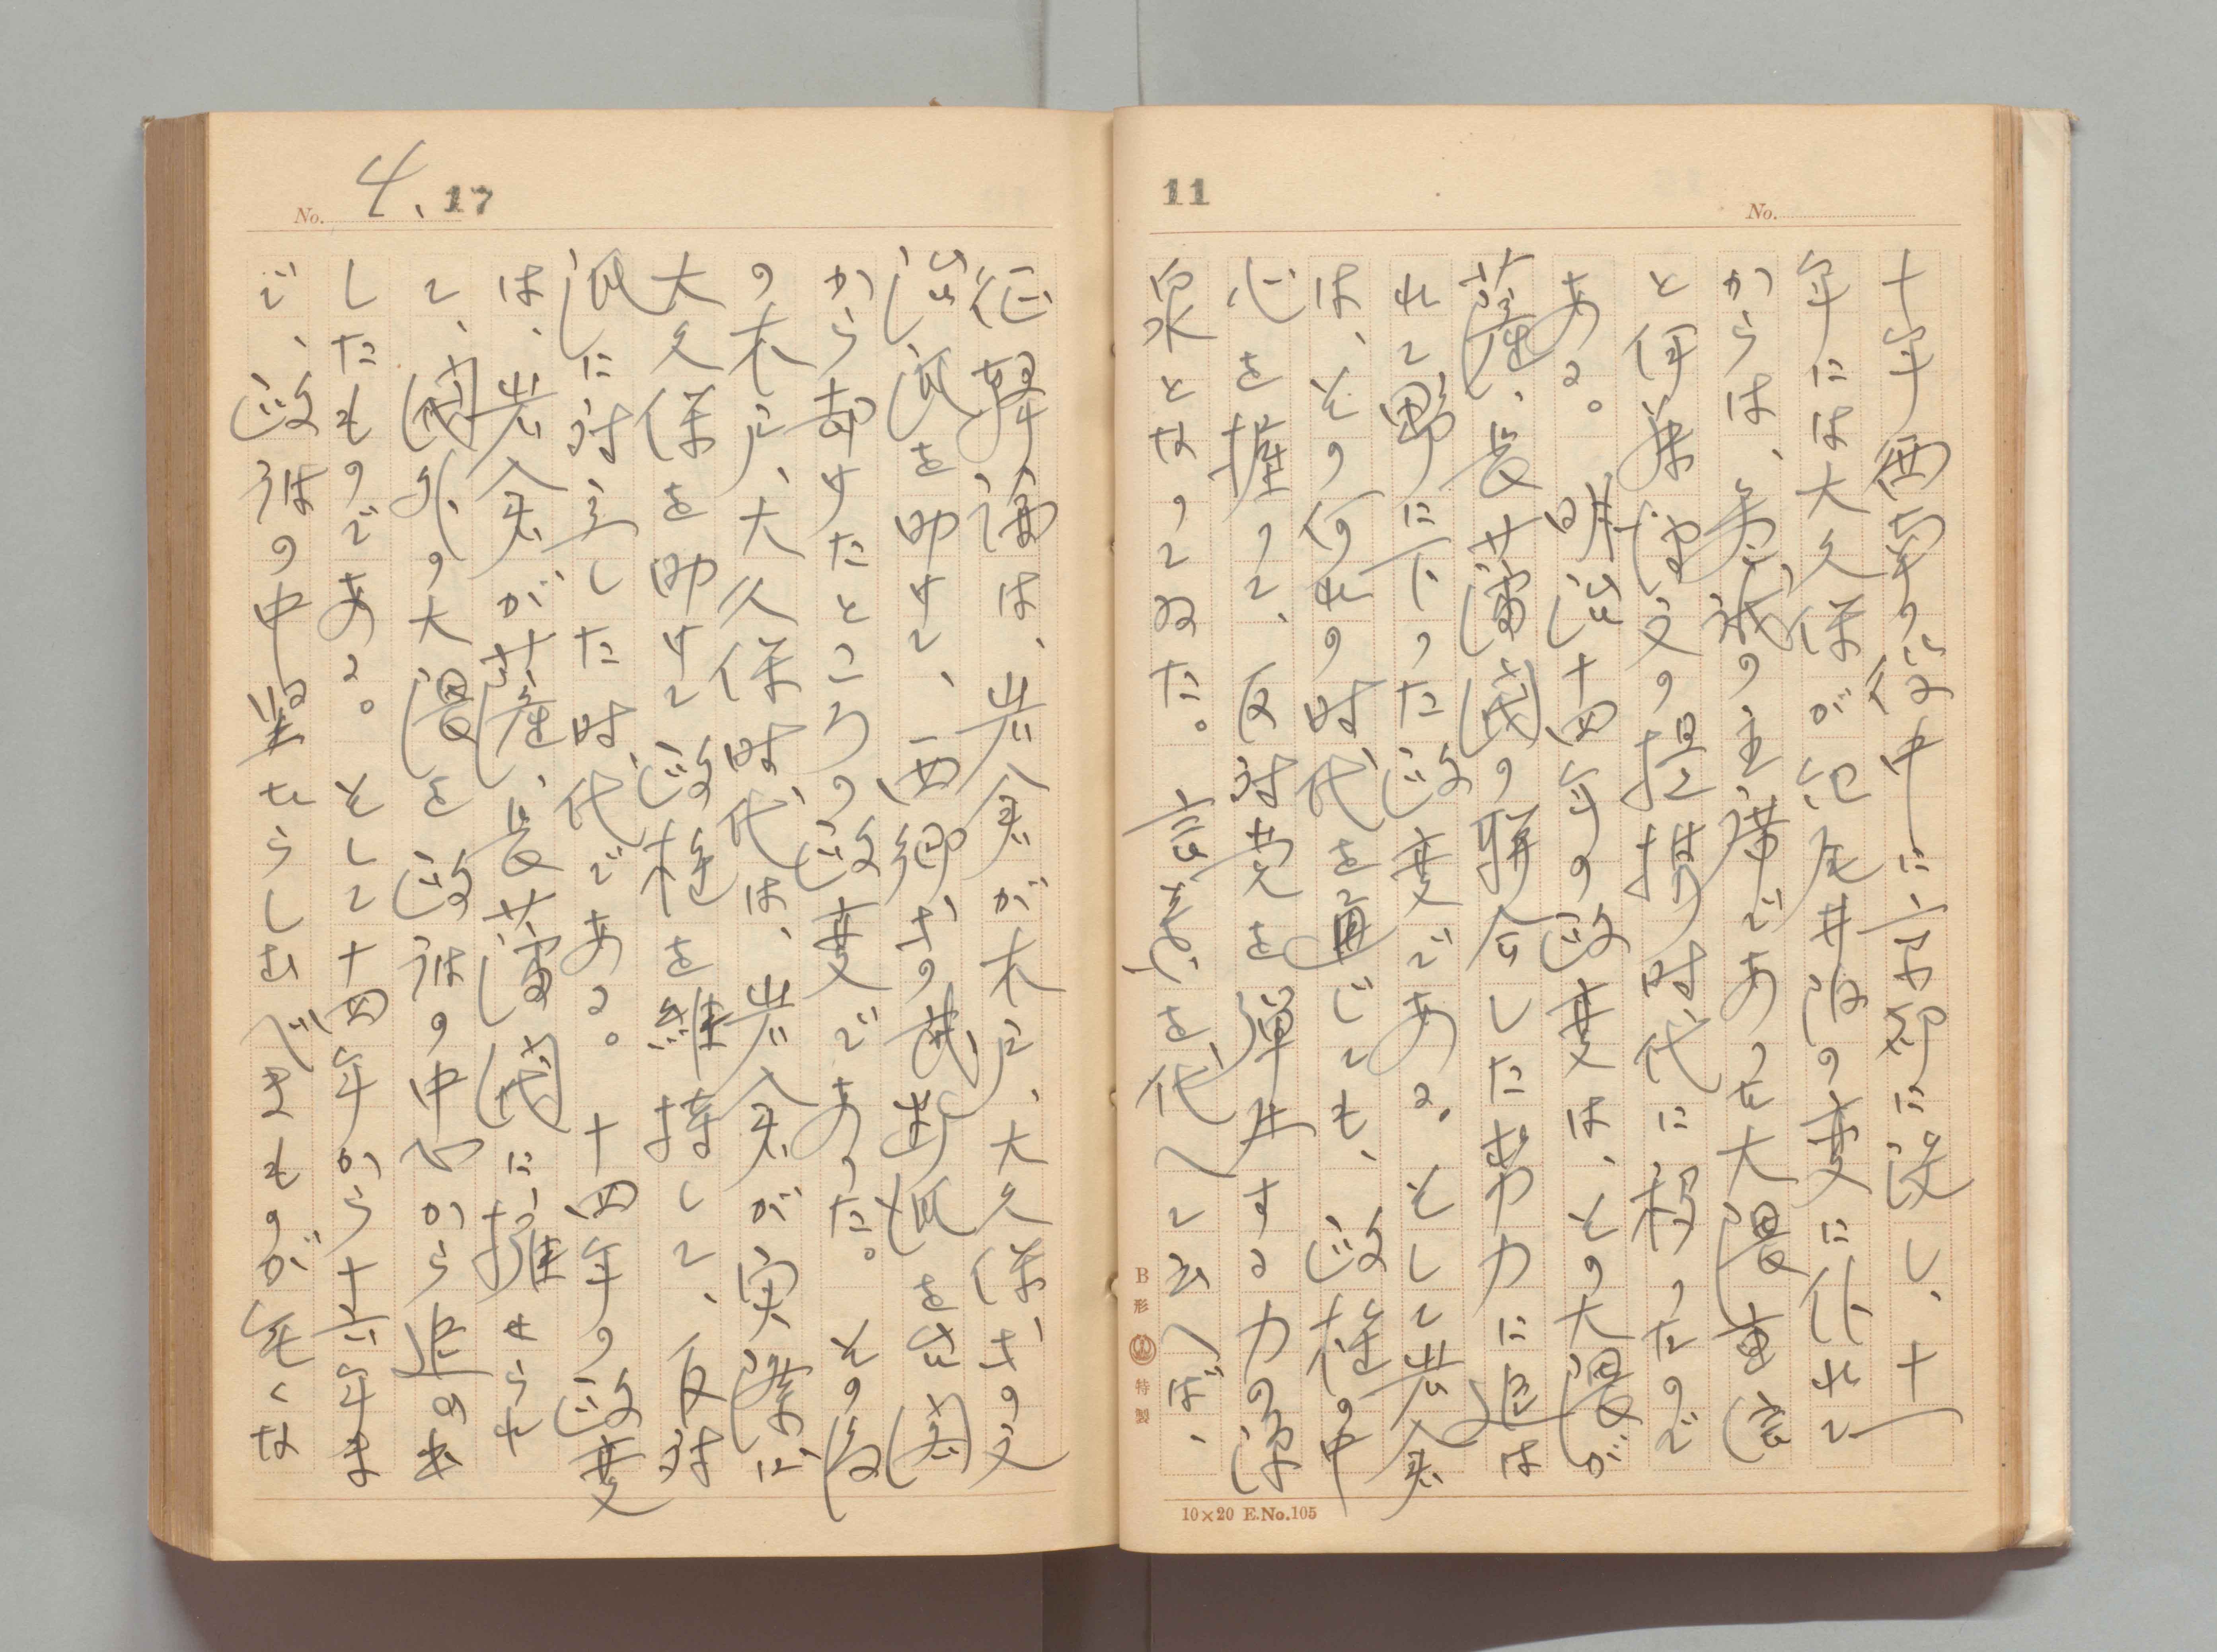 11
No.
十年西南の役中に京都に歿し、十一
年には大久保が紀尾井阪の変に仆れて
からは、参議の主席であつた大隈重信
と伊藤博文の提携時代に移つたので
ある。明治十四年の政変は、その大隈が
薩、長藩閥の聯合した勢力に追は
れて野に下つた政変である。そして岩倉
は、その何れの時代を通じても、政権の中
心を握つて、反対党を弾圧する力の源
泉となつてゐた。言葉を代へて云へば、
B形 特製
10×20 E.No.105
No. 4、17
征韓論は、岩倉が木戸、大久保等の文
治派を助けて、西郷等の武断派を台閣
から却けたところの政変であつた。その後
の木戸、大久保時代は、岩倉が実際に
大久保を助けて政権を維持して、反対
派に対立した時代である。十四年の政変
は、岩倉が薩、長藩閥に擁せられ
て、閥外の大隈を政府の中心から追
したものである。そして十四年から十六年ま
で、政府の中堅たらしむべきものが無くな